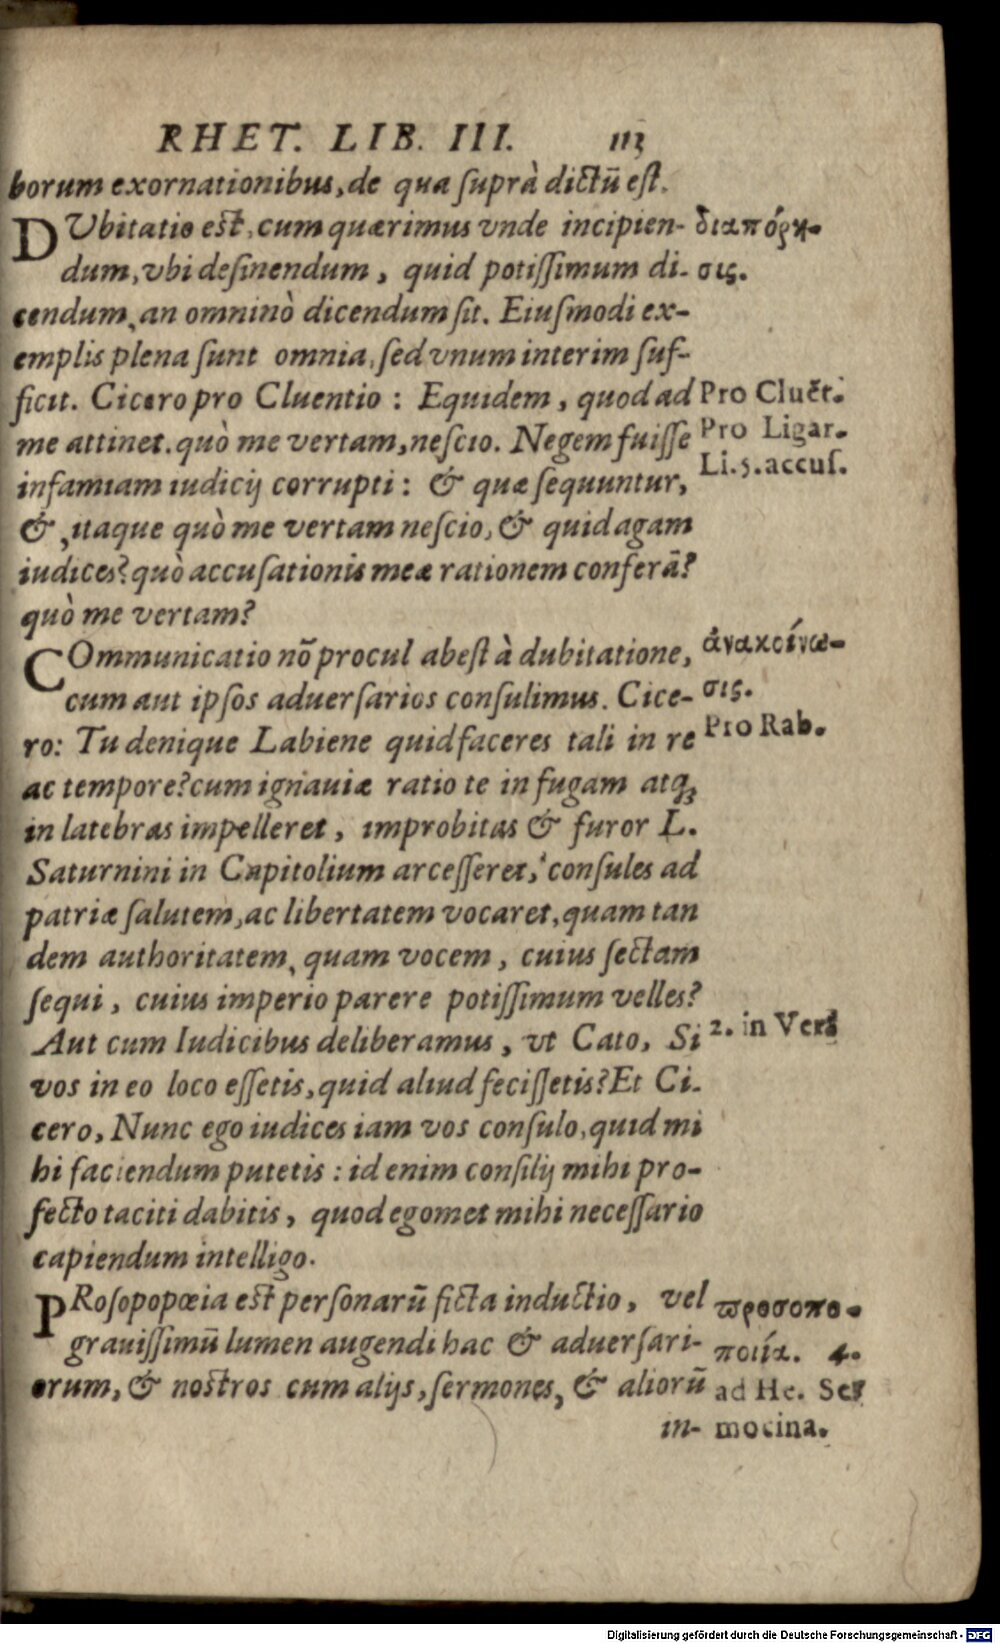 RHET. LIB. III. 113
borum exornationibus, de qua suprà dictũ est.
DUbitatio est, cum quærimus vnde incipien- διαπόρη-
dum, vbi desinendum, quid potissimum di- σις.
cendum, an omninò dicendum sit. Eiusmodi ex-
emplis plena sunt omnia, sed vnum interim suf-
ficit. Cicero pro Cluentio : Equidem, quod ad Pro Cluẽt.
me attinet. quò me vertam, nescio. Negem fuisse Pro Ligar.
infamiam iudicij corrupti : & quæ sequuntur, Li.5.accus.
& , itaque quò me vertam nescio, & quid agam
iudices? quò accusationis meæ rationem conferã?
quò me vertam?
COmmunicatio nõ procul abest à dubitatione, ἀνακοίνω-
cum aut ipsos aduersarios consulimus. Cice- σις.
ro: Tu denique Labiene quid faceres tali in re Pro Rab.
ac tempore? cum ignauiæ ratio te in fugam atq;
in latebras impelleret, improbitas & furor L.
Saturnini in Capitolium arcesseret, consules ad
patriæ salutem, ac libertatem vocaret, quam tan
dem authoritatem, quam vocem, cuius sectam
sequi, cuius imperio parere potissimum velles?
Aut cum Iudicibus deliberamus, vt Cato, Si 2. in Ver.
vos in eo loco essetis, quid aliud fecissetis? Et Ci-
cero, Nunc ego iudices iam vos consulo, quid mi
hi faciendum putetis : id enim consilij mihi pro-
fecto taciti dabitis, quod egomet mihi necessario
capiendum intelligo.
PRosopopœia est personarũ ficta inductio, vel προσοπο-
grauissimũ lumen augendi hac & aduersari- ποιία. 4.
orum, & nostros cum alijs, sermones, & aliorũ ad He. Ser
in- mocina.
Digitalisierung gefördert durch die Deutsche Forschungsgemeinschaft - DFG